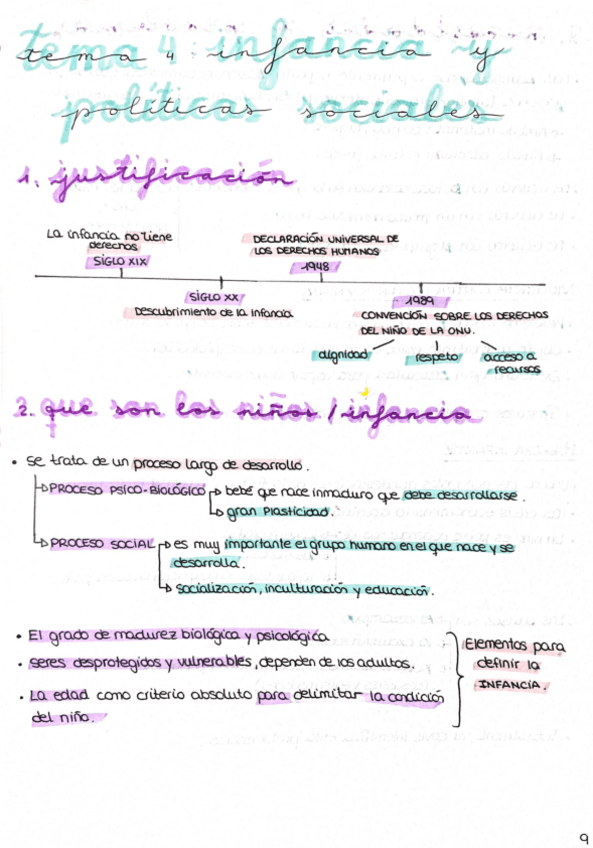 tema 4: infancia y
políticas sociales
1. justificación
La infancia no tiene
derechos
SIGLO XIX
DECLARACIÓN UNIVERSAL DE
LOS DERECHOS HUMANOS
1948
SIGLO XX
Descubrimiento de la infancia
1989
CONVENCIÓN SOBRE LOS DERECHOS
DEL NIÑO DE LA ONU.
dignidad
respeto
acceso a
recursos
2. que son los niños / infancia
• Se trata de un proceso largo de desarrollo.
↳ PROCESO PSICO-BIOLÓGICO ↳ bebé que nace inmaduro que debe desarrollarse.
↳ gran plasticidad.
↳ PROCESO SOCIAL ↳ es muy importante el grupo humano en el que nace y se
desarrolla.
↳ socialización, inculturación y educación.
• El grado de madurez biológica y psicológica
• seres desprotegidos y vulnerables, dependen de los adultos.
• La edad como criterio absoluto para delimitar la condición
del niño.
Elementos para
definir la
INFANCIA.
9